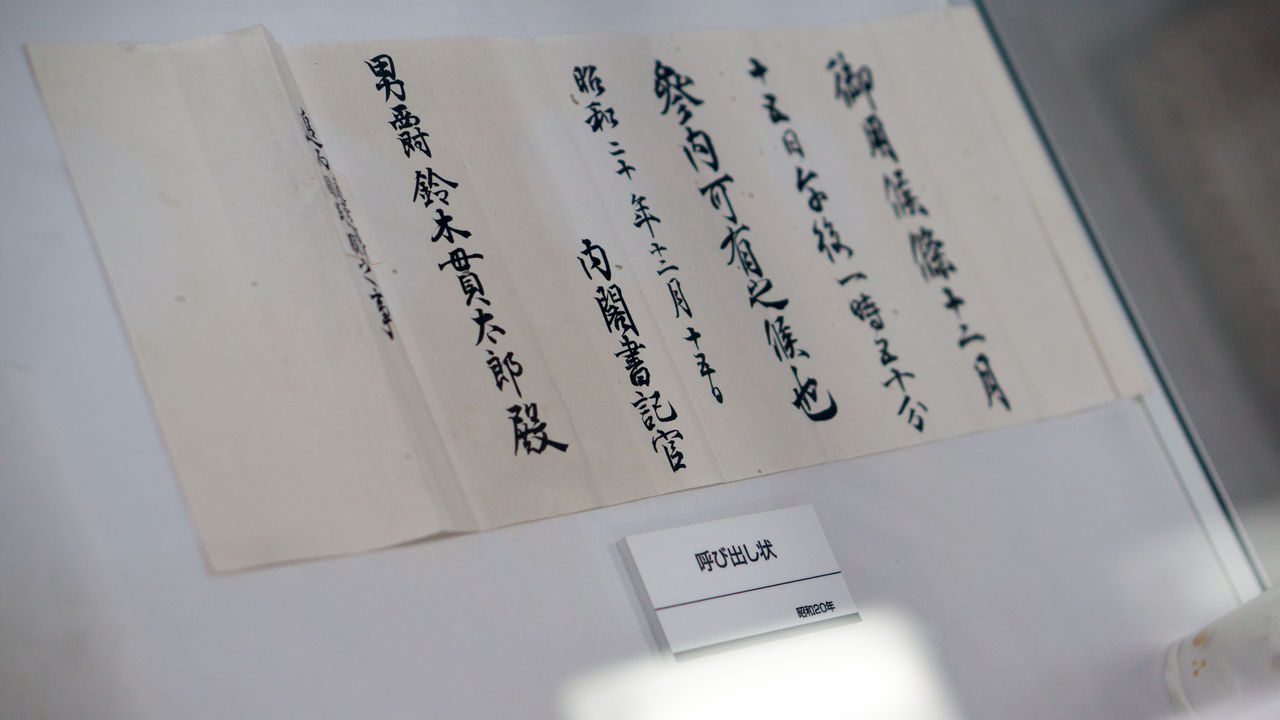 御用候條十二月
十五日午後一時五十分
参内可有之候也
昭和二十年十二月十五日
内閣書記官
男爵鈴木貫太郎殿
呼び出し状
昭和20年